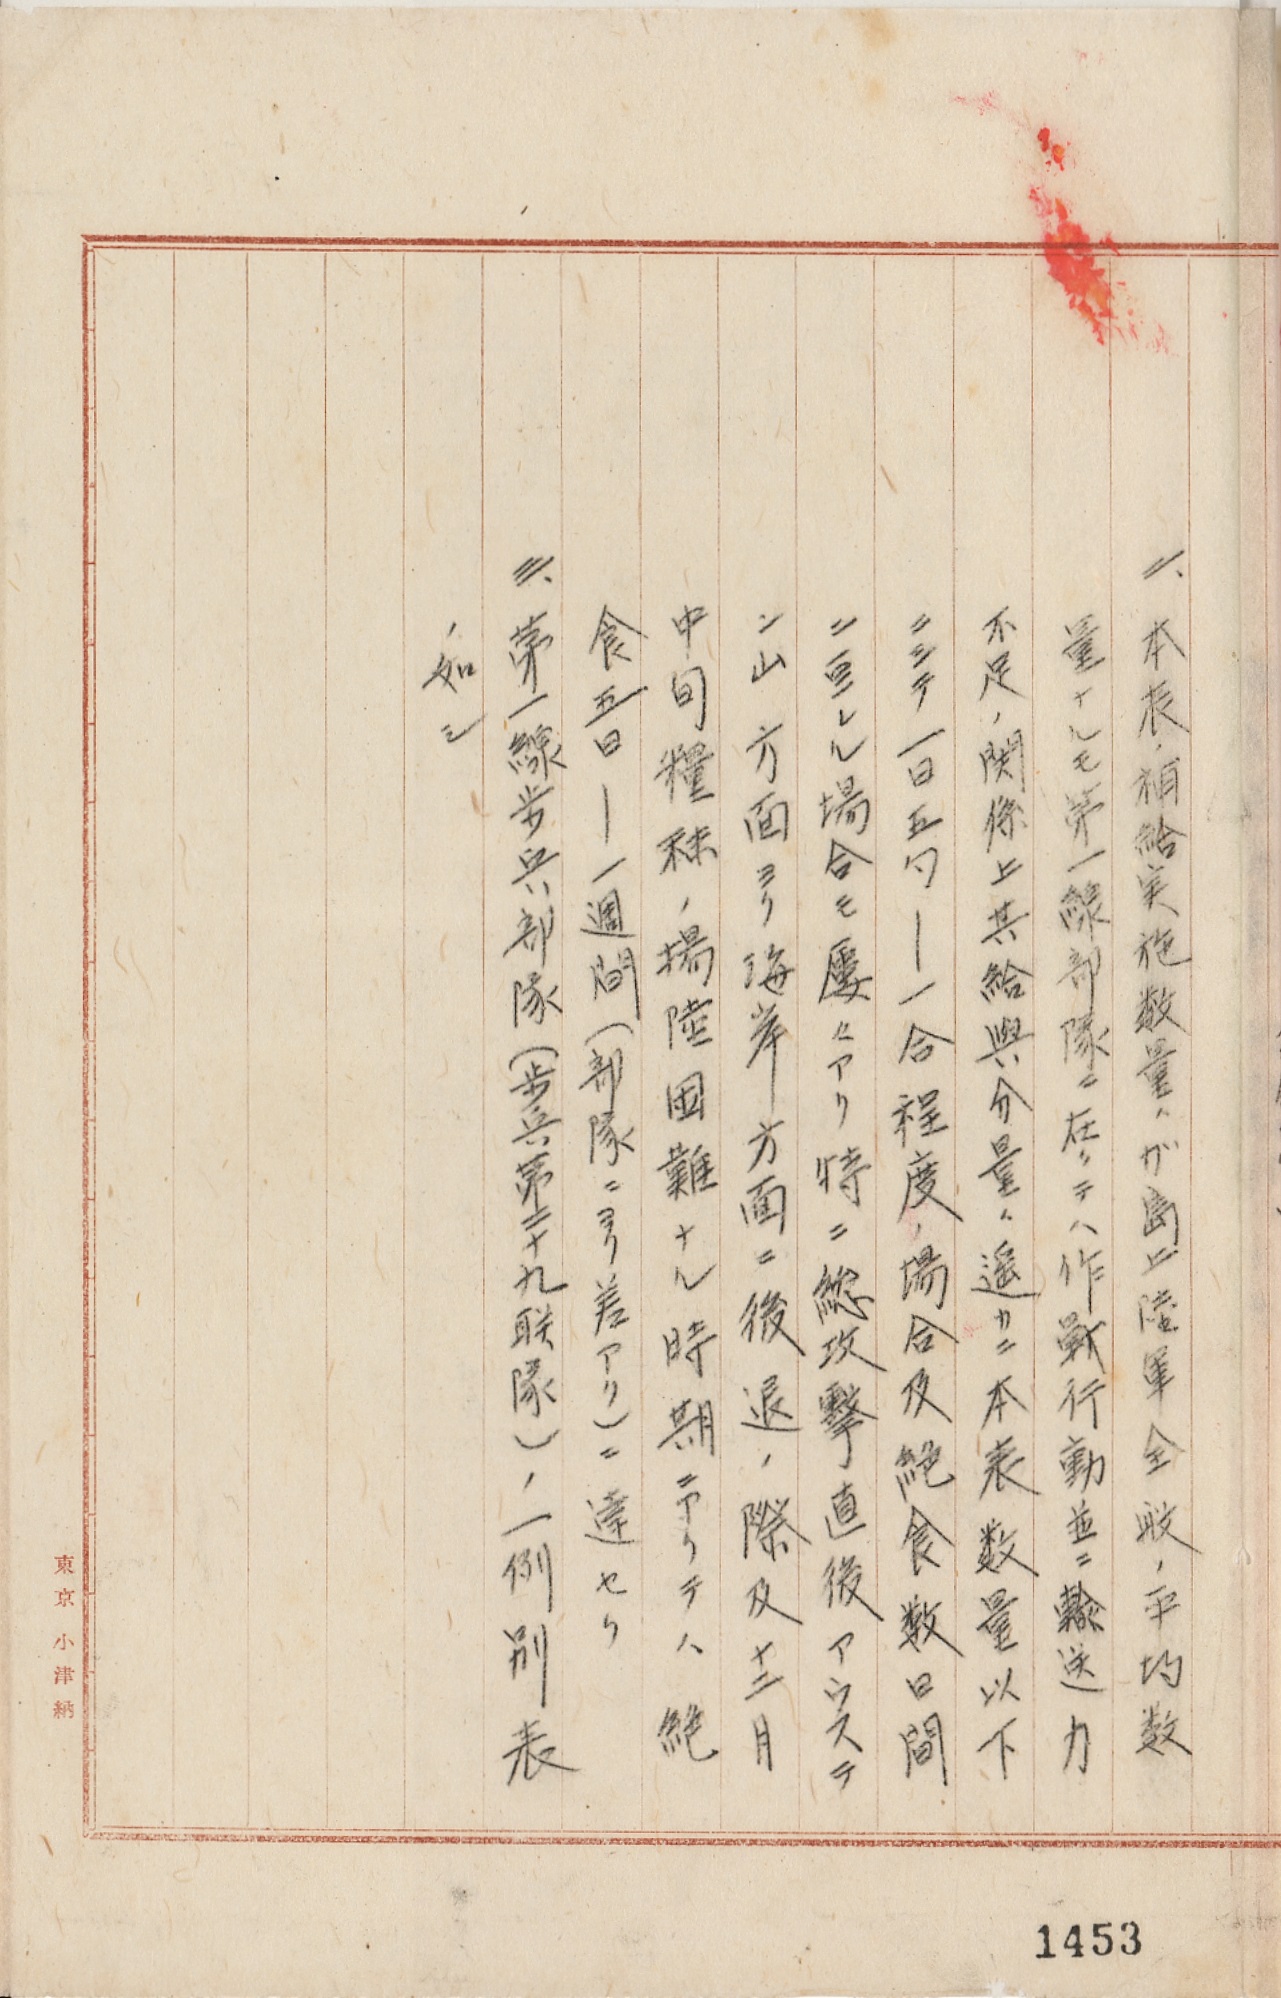 二、本表ノ補給実施数量ハガ島上陸軍全般ノ平均数
量ナルモ第一線部隊ニ在リテハ作戦行動並ニ輸送力
不足ノ関係上其給與分量ハ遥カニ本表数量以下
ニシテ一日五勺―一合程度ノ場合及絶食数日間
ニ亘レル場合モ屡々アリ特ニ総攻撃直後アウステ
ン山方面ヨリ海岸方面ニ後退ノ際及十二月
中旬糧秣ノ揚陸困難ナル時期ニアリテハ絶
食五日―一週間(部隊ニヨリ差アリ)ニ達セリ
三、第一線歩兵部隊(歩兵第二十九联隊)ノ一例別表
ノ如シ
東京 小津納
1453